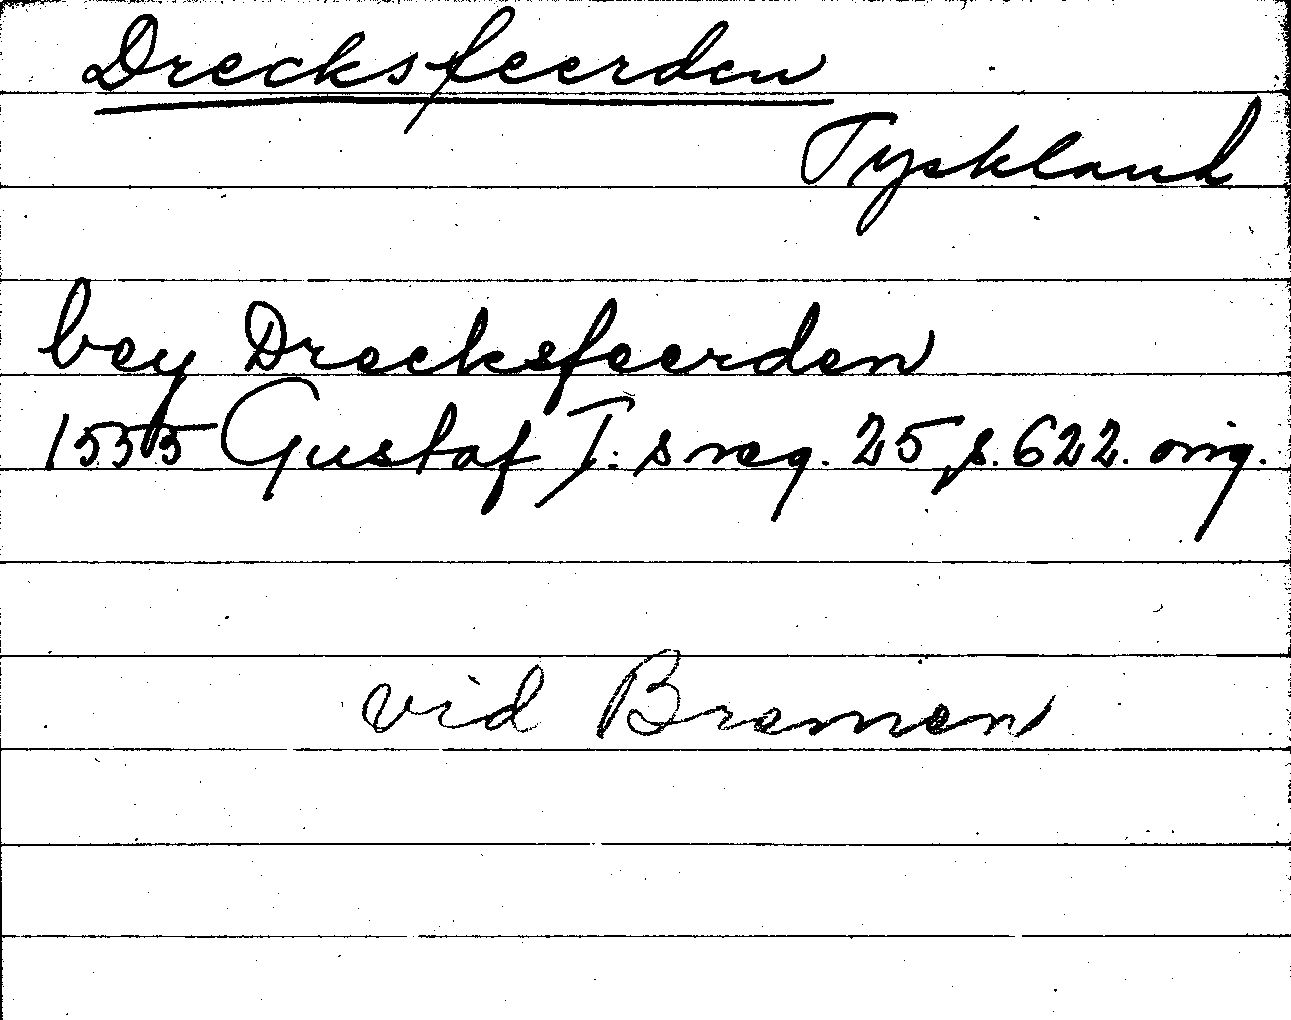 Drecksfeerden
Tyskland
bey Drecksfeerden
1555 Gustaf I:s reg. 25, s. 622. orig.
vid Bremen